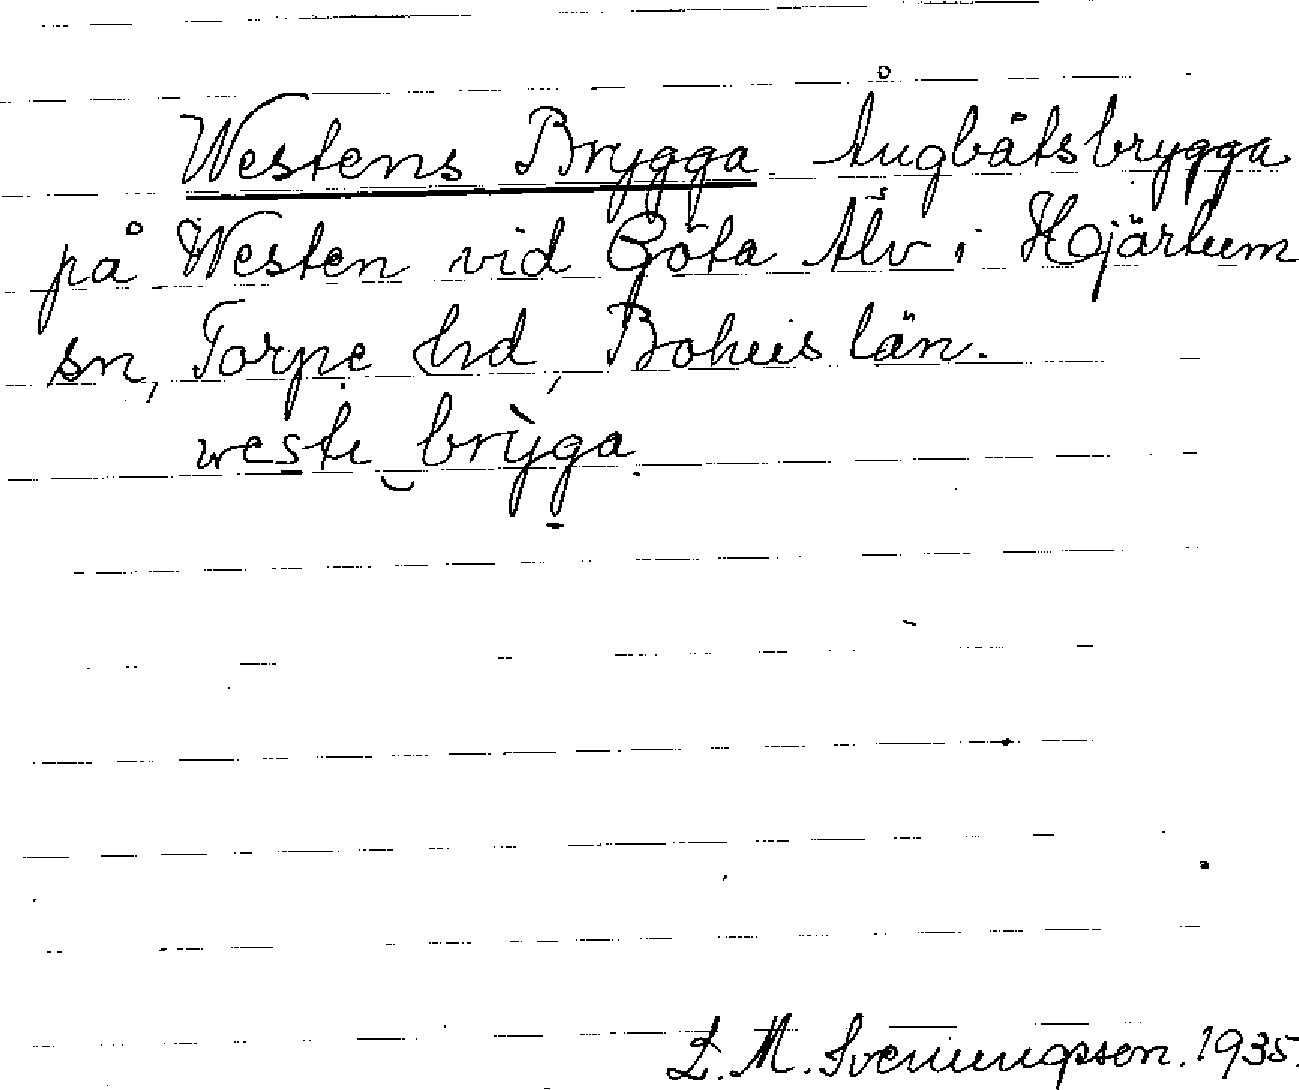 Westens Brygga Ångbåtsbrygga
på Westen vid Göta Älv i Hjärtum
sn, Torpe hd, Bohus län.
weste brỳga.
L. M. Svenungsson. 1935.